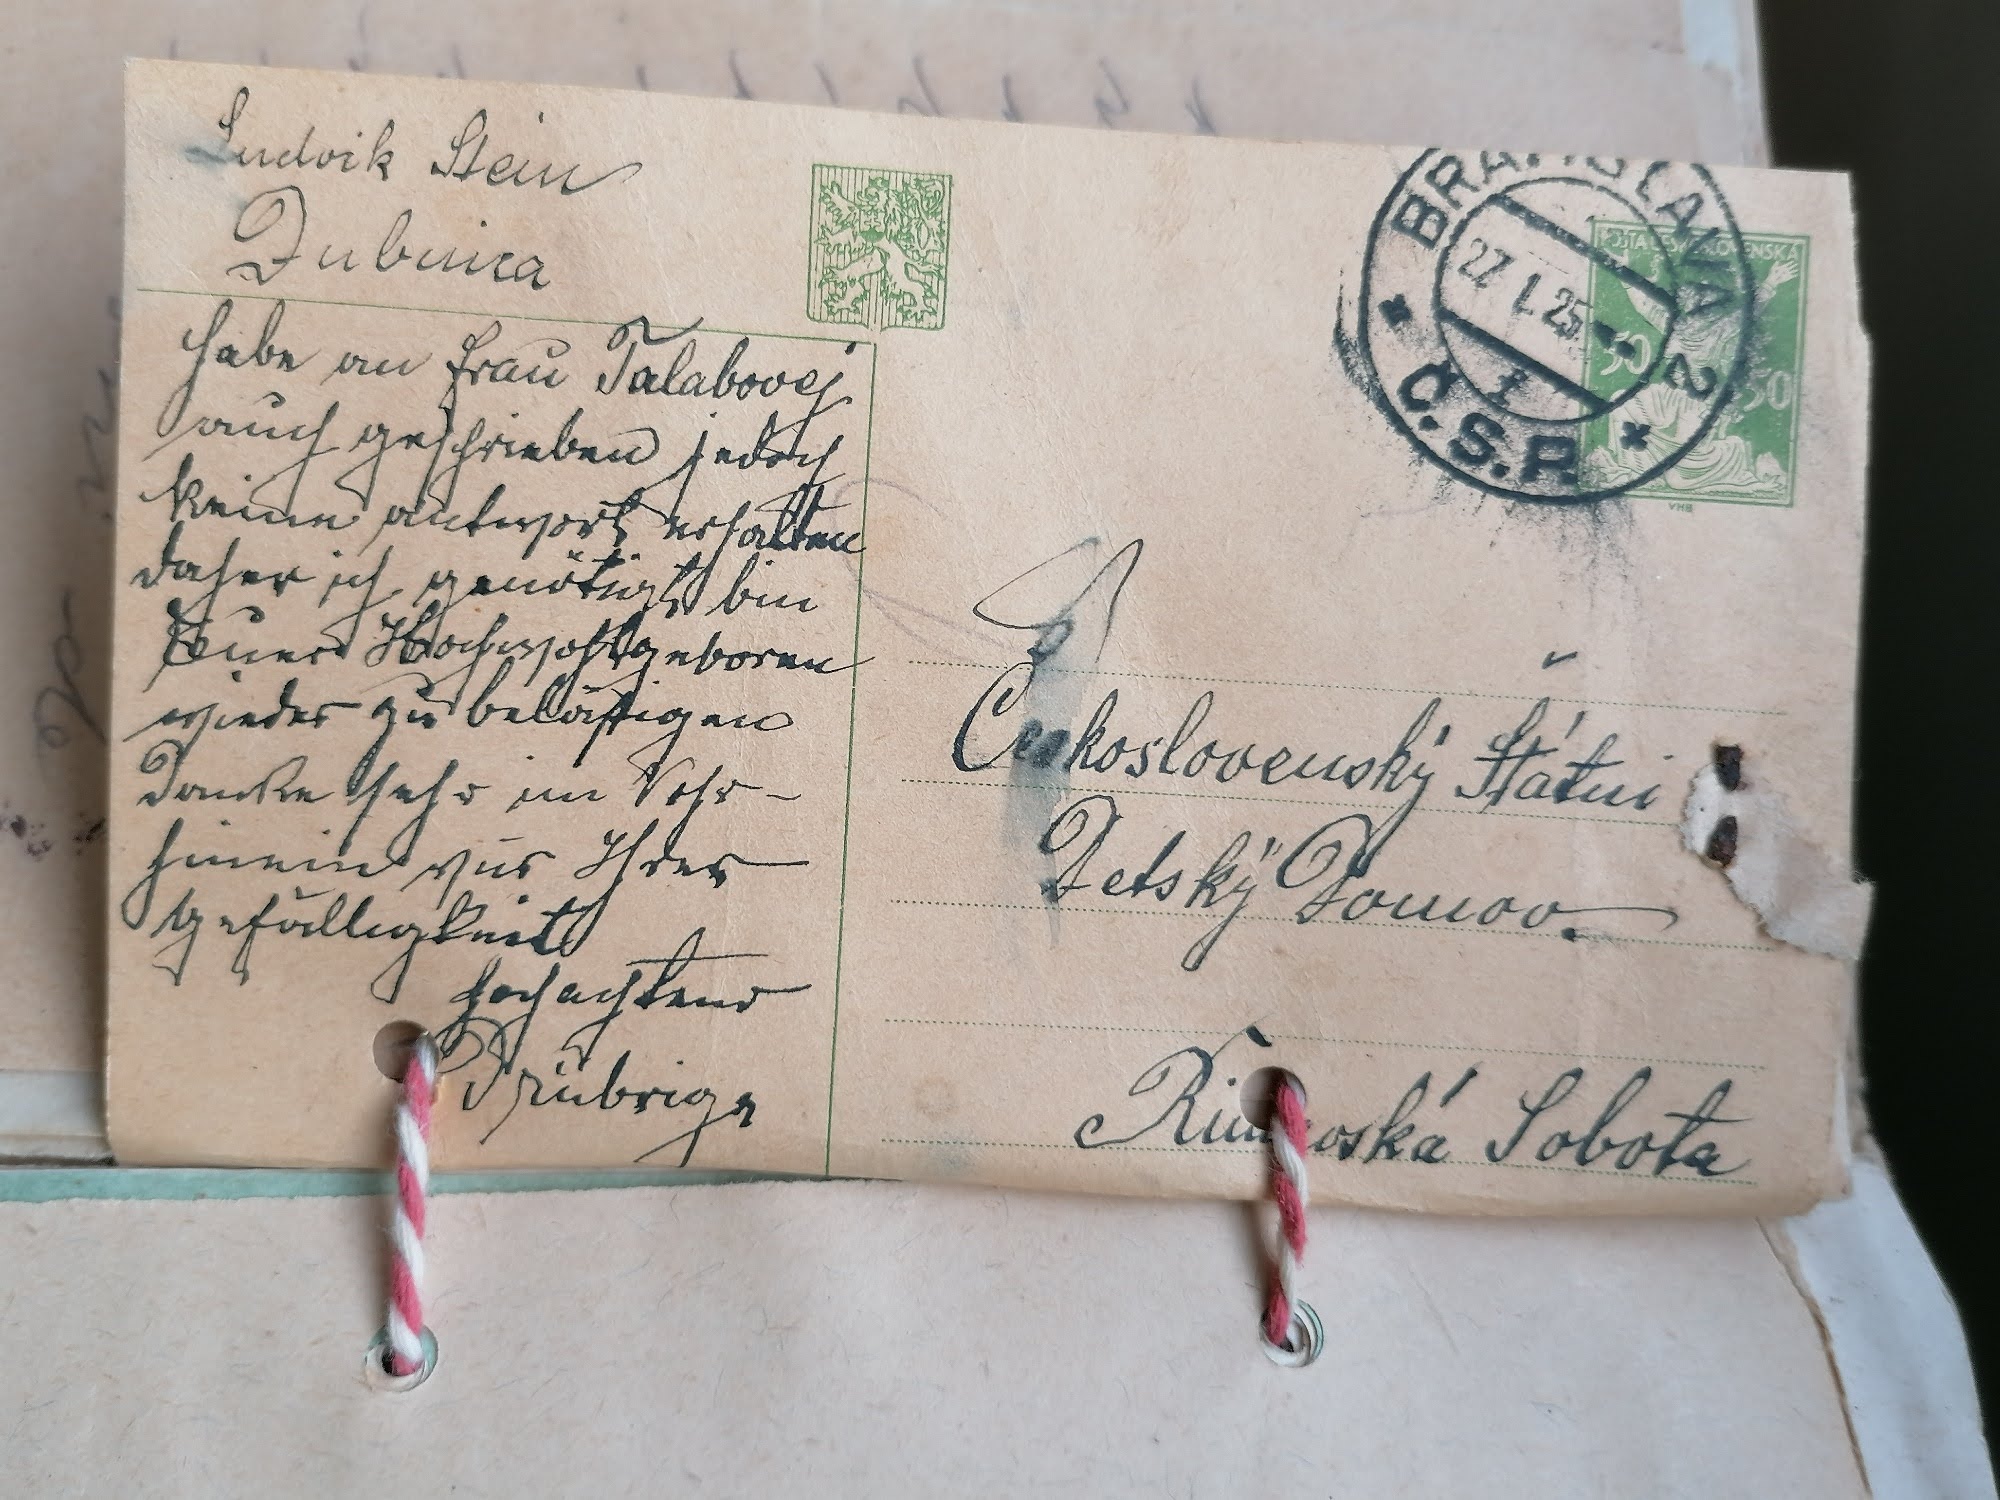 Ludvik Stein
Dubnica
habe an Frau Talabovej
auch geschrieben jedoch
keine antwort erhalten
daher ich genötigt bin
Euer Hochwohlgeboren
wieder zu belästigen
Danke sehr im Vohr-
hinein vür Ihrer
Gefälligkeit
hochachtend
BRATISLAVA 2
27. I. 25
Č.S.P.
POŠTA ČESKOSLOVENSKÁ
50 50
VHB
Československý Státni
Detský Domov.
Rimavská Sobota